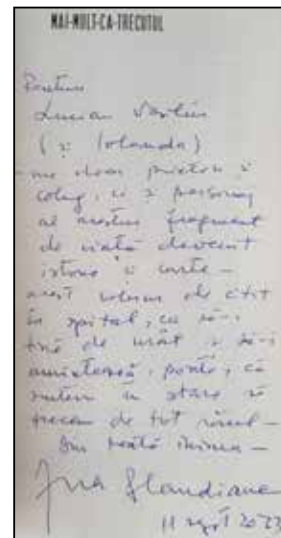 MAI-MULT-CA-TRECUTUL
Pentru
Lucian Vasiliu
(și Iolanda)
- nu doar prieten și
coleg, ci și personaj
al acestui fragment
de viață devenit
istorie și carte -
acest volum de citit
în spital, ca să-i
țină de urât și să-i
amintească, poate, că
suntem în stare să
trecem de tot răul -
Din toată inima -
Ana Blandiana
11 sept 2023